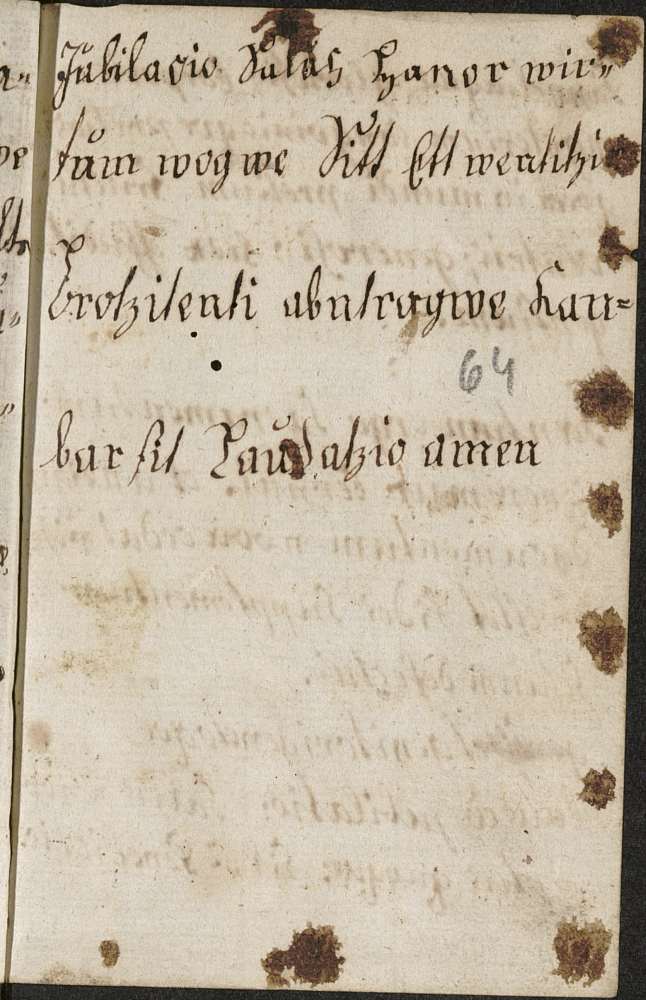 Jubilazio Salus Hanor wir=
tum wogwe Sitt Ett werlitzi
Brotzitenti abutrogwe Kau=
64
bar sit Laudatzio amen